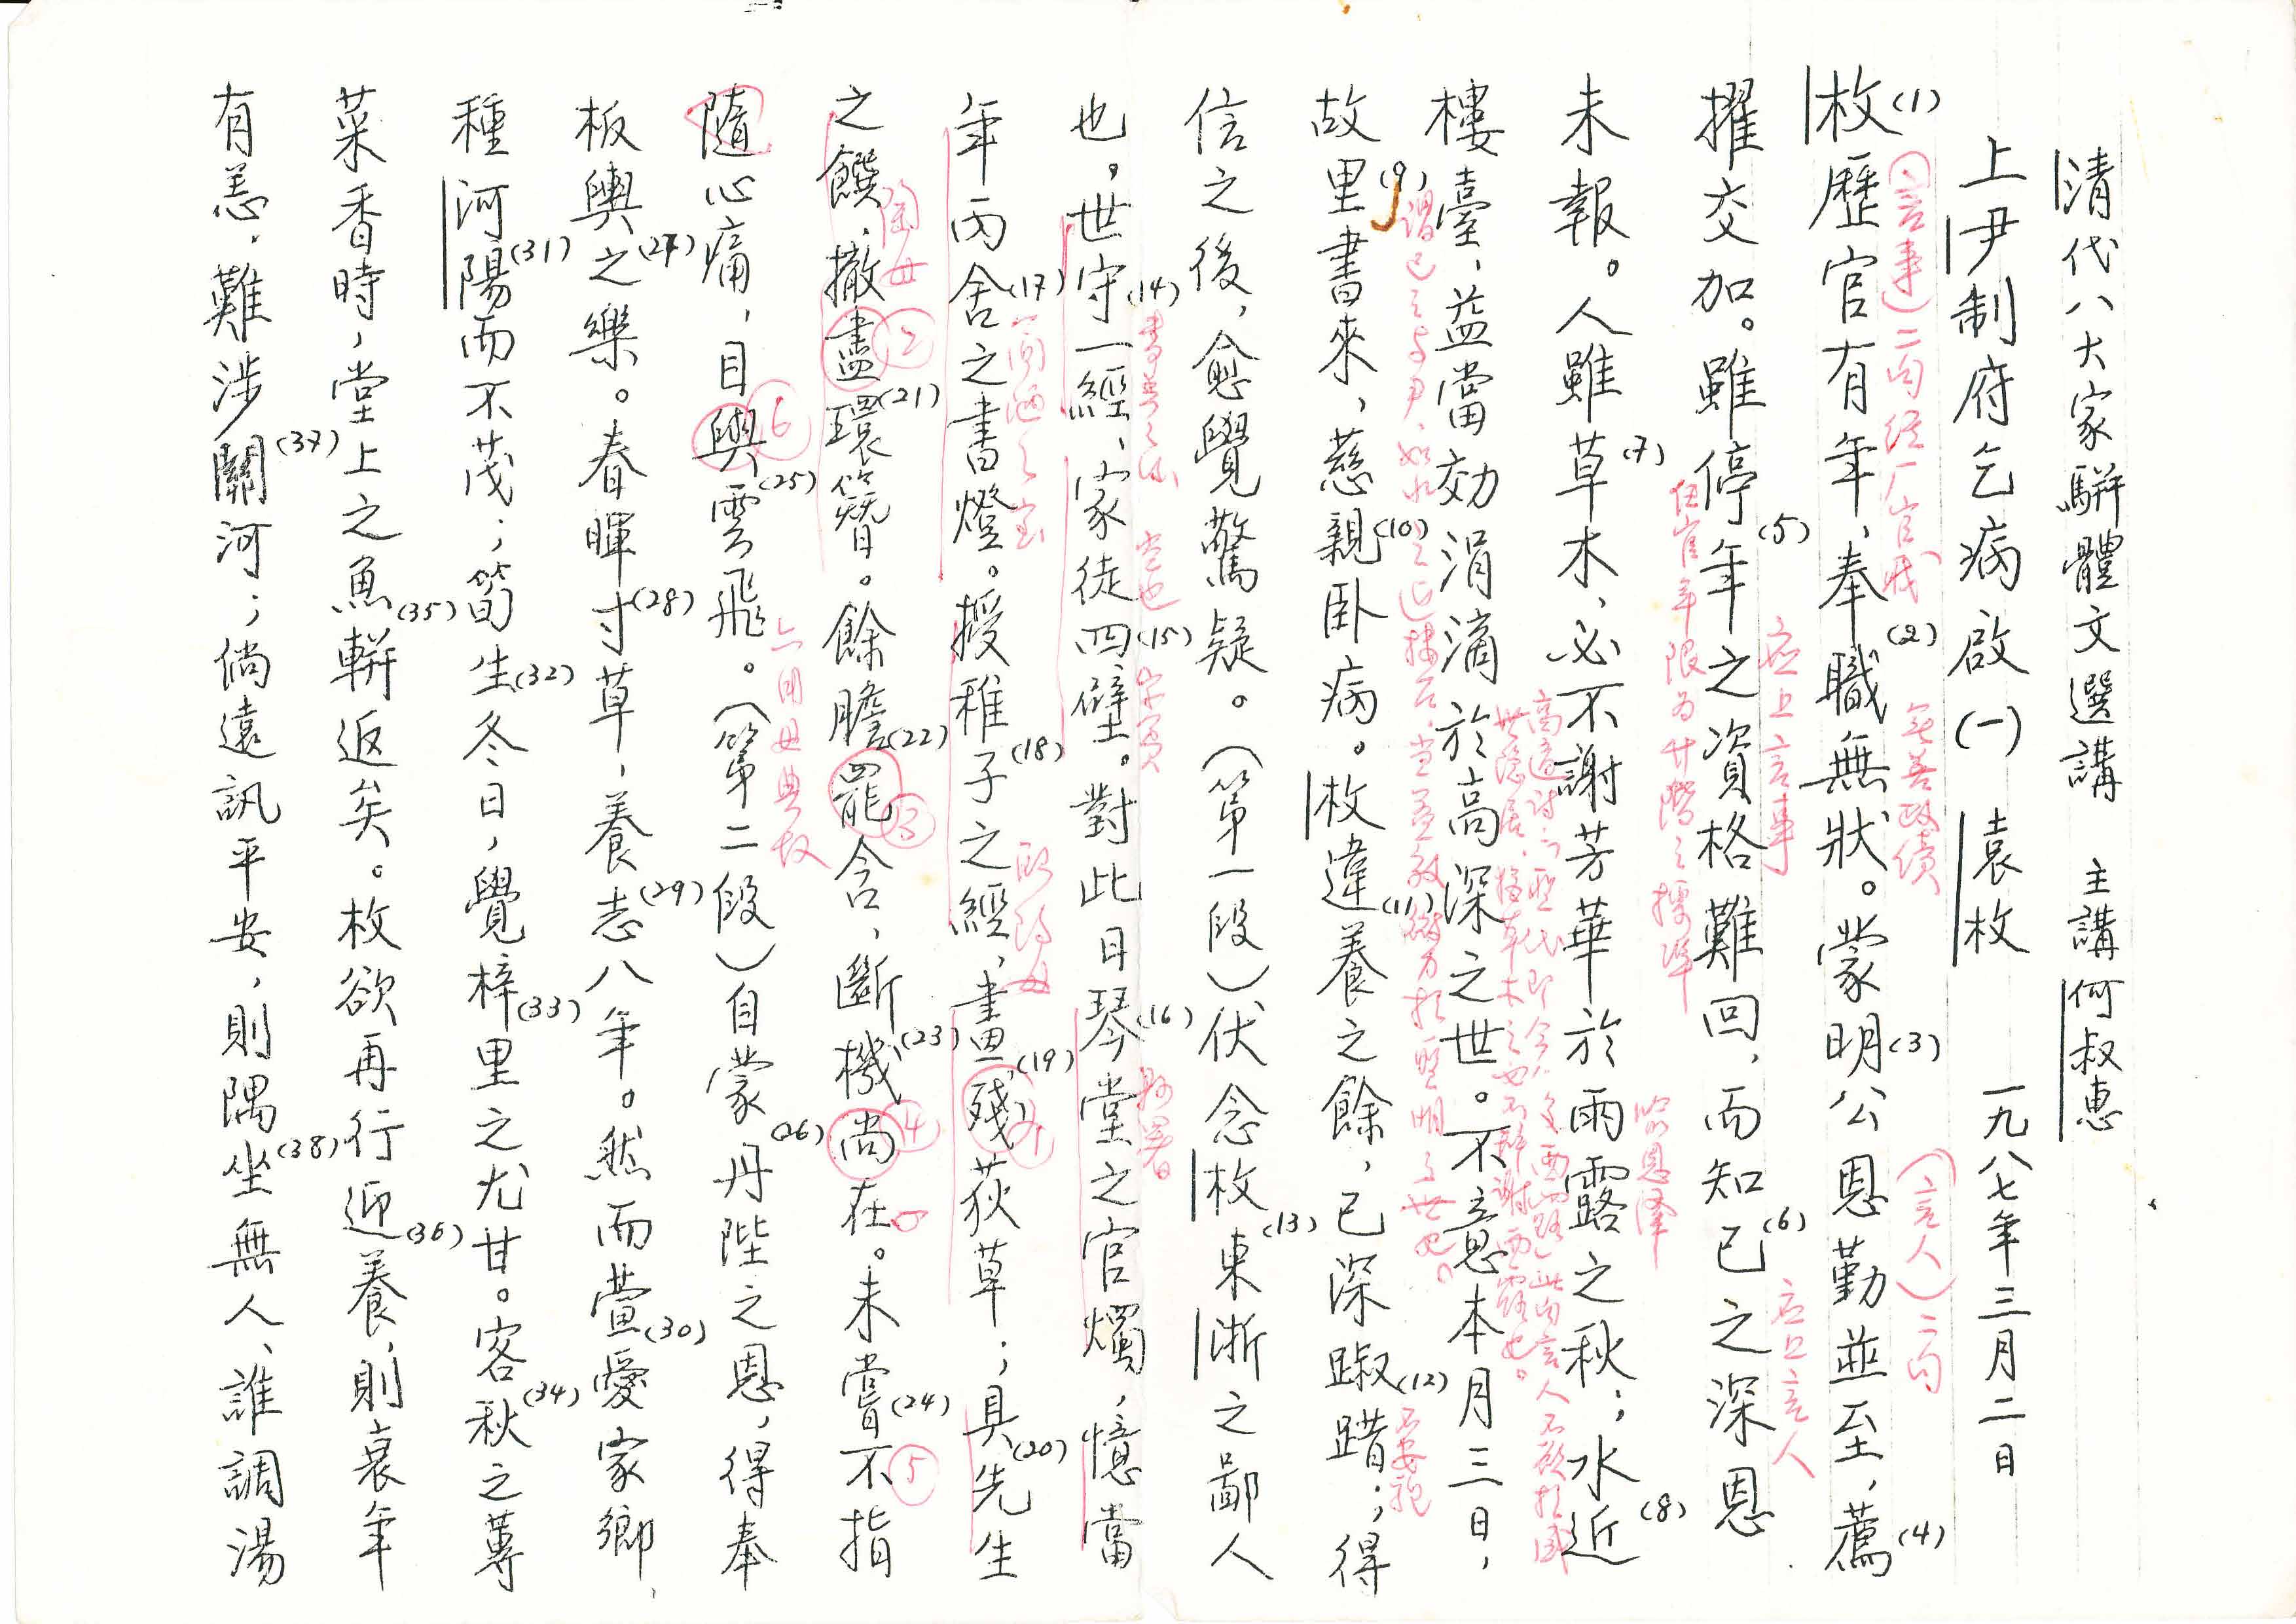 清代八大家駢體文選講 主講何叔惠
上尹制府乞病啟(一) 袁枚 一九八七年三月二日
枚(1)歷官有年、奉職(2)無狀。蒙明(3)公恩勤並至，薦(4)
(言事)二句經厂官职
無善政績
(言人)二句
擢交加。雖停年(5)之資格難回，而知己(6)之深恩
应上言事
应上言人
未報。人雖草(7)木、必不謝芳華於雨露之秋；水近(8)
任官年限为升階之標準
喻恩澤
樓臺、益當効涓滴於高深之世。不意本月三日，
故里(9)書來、慈親(10)臥病。枚違(11)養之餘，已深踧(12)踖；得
不安貌
信之後，愈覺驚疑。(第一段)伏念枚東(13)浙之鄙人
也。世守(14)一經、家徒四(15)壁。對此日琴(16)堂之官燭，憶當
空也
縣署
年丙舍(17)之書燈。授稚子(18)之經、畫(19)殘荻草；具(20)先生
歐陽母
之饌、撤盡環(21)簪。餘膽(22)罷含、斷機(23)尚在。未嘗(24)不指
陶母
②
③
④
⑤
隨心痛，目與雲(25)飛。(第二段)自蒙丹(26)陛之恩，得奉
⑥
六用母典故
板輿之(27)樂。春暉寸(28)草、養志(29)八年。然而萱(30)愛家鄉、
種河陽(31)而不茂；筍生(32)冬日，覺梓(33)里之尤甘。客秋(34)之蓴
菜香時，堂上之魚軿(35)返矣。枚欲再行迎(36)養，則衰年
有恙、難涉關(37)河；倘遠訊平安，則隅坐(38)無人、誰調湯